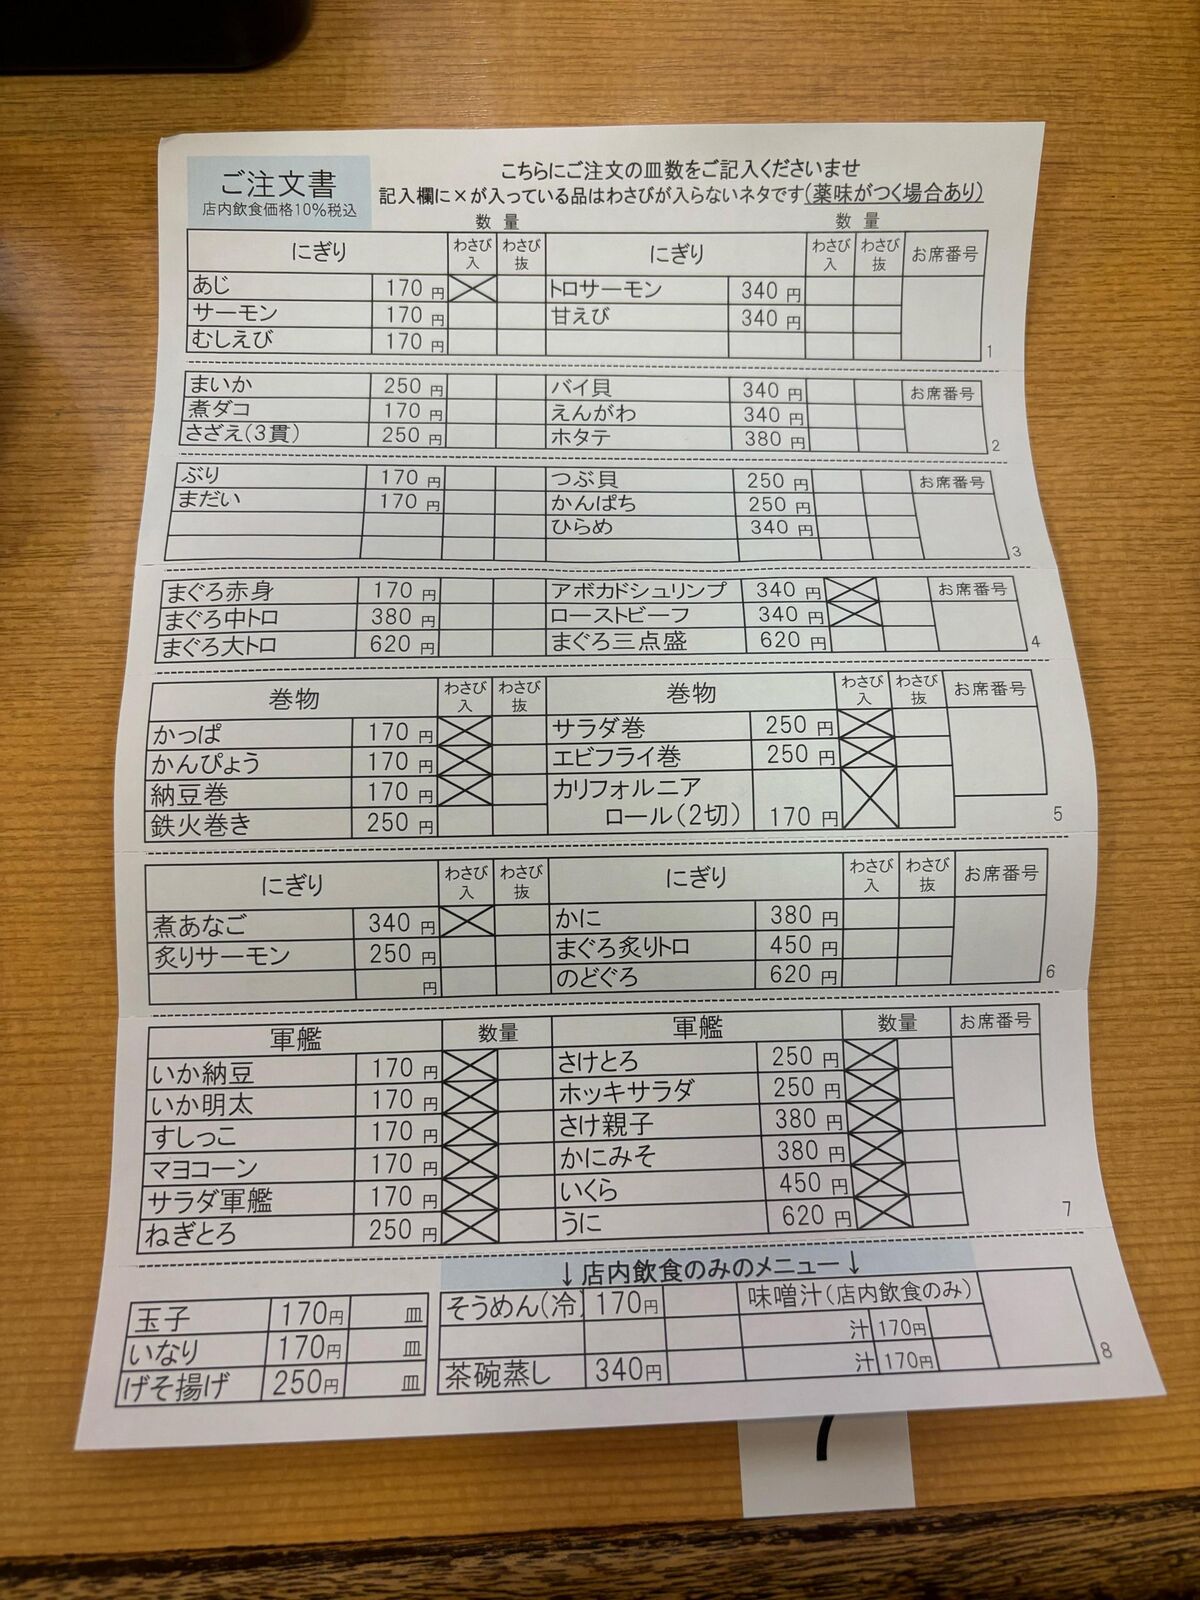 ご注文書
店内飲食価格10%税込
こちらにご注文の皿数をご記入くださいませ
記入欄に×が入っている品はわさびが入らないネタです(薬味がつく場合あり)
数 量 数 量
にぎり わさび入 わさび抜 にぎり わさび入 わさび抜 お席番号
あじ 170 円 トロサーモン 340 円
サーモン 170 円 甘えび 340 円
むしえび 170 円
1
まいか 250 円 バイ貝 340 円 お席番号
煮ダコ 170 円 えんがわ 340 円
さざえ(3貫) 250 円 ホタテ 380 円
2
ぶり 170 円 つぶ貝 250 円 お席番号
まだい 170 円 かんぱち 250 円
ひらめ 340 円
3
まぐろ赤身 170 円 アボカドシュリンプ 340 円 お席番号
まぐろ中トロ 380 円 ローストビーフ 340 円
まぐろ大トロ 620 円 まぐろ三点盛 620 円
4
巻物 わさび入 わさび抜 巻物 わさび入 わさび抜 お席番号
かっぱ 170 円 サラダ巻 250 円
かんぴょう 170 円 エビフライ巻 250 円
納豆巻 170 円 カリフォルニア
鉄火巻き 250 円 ロール(2切) 170 円
5
にぎり わさび入 わさび抜 にぎり わさび入 わさび抜 お席番号
煮あなご 340 円 かに 380 円
炙りサーモン 250 円 まぐろ炙りトロ 450 円
円 のどぐろ 620 円
6
軍艦 数量 軍艦 数量 お席番号
いか納豆 170 円 さけとろ 250 円
いか明太 170 円 ホッキサラダ 250 円
すしっこ 170 円 さけ親子 380 円
マヨコーン 170 円 かにみそ 380 円
サラダ軍艦 170 円 いくら 450 円
ねぎとろ 250 円 うに 620 円
7
↓店内飲食のみのメニュー↓
玉子 170円 皿 そうめん(冷) 170円 味噌汁(店内飲食のみ)
いなり 170円 皿 汁 170円
げそ揚げ 250円 皿 茶碗蒸し 340円 汁 170円
8